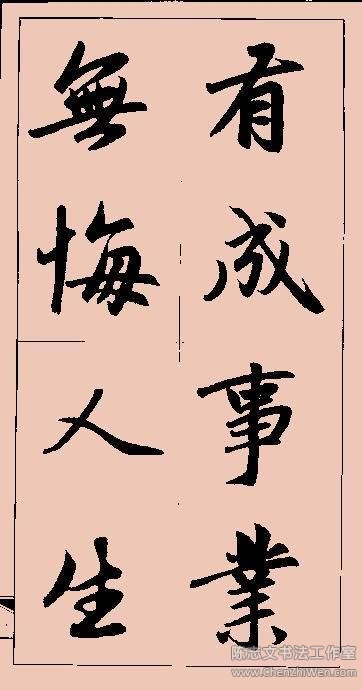 有成事業
無悔人生
陈志文书法工作室
www.Chenzhiwen.com